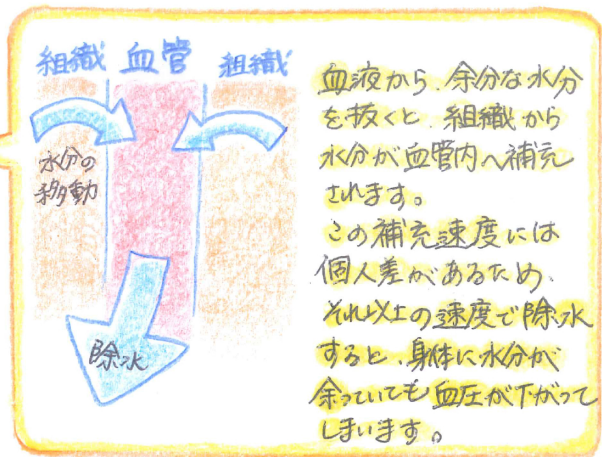 組織 血管 組織
水分の
移動
除水
血液から、余分な水分
を抜くと、組織から
水分が血管内へ補充
されます。
この補充速度には
個人差があるため、
それ以上の速度で除水
すると、身体に水分が
余っていても血圧が下がって
しまいます。